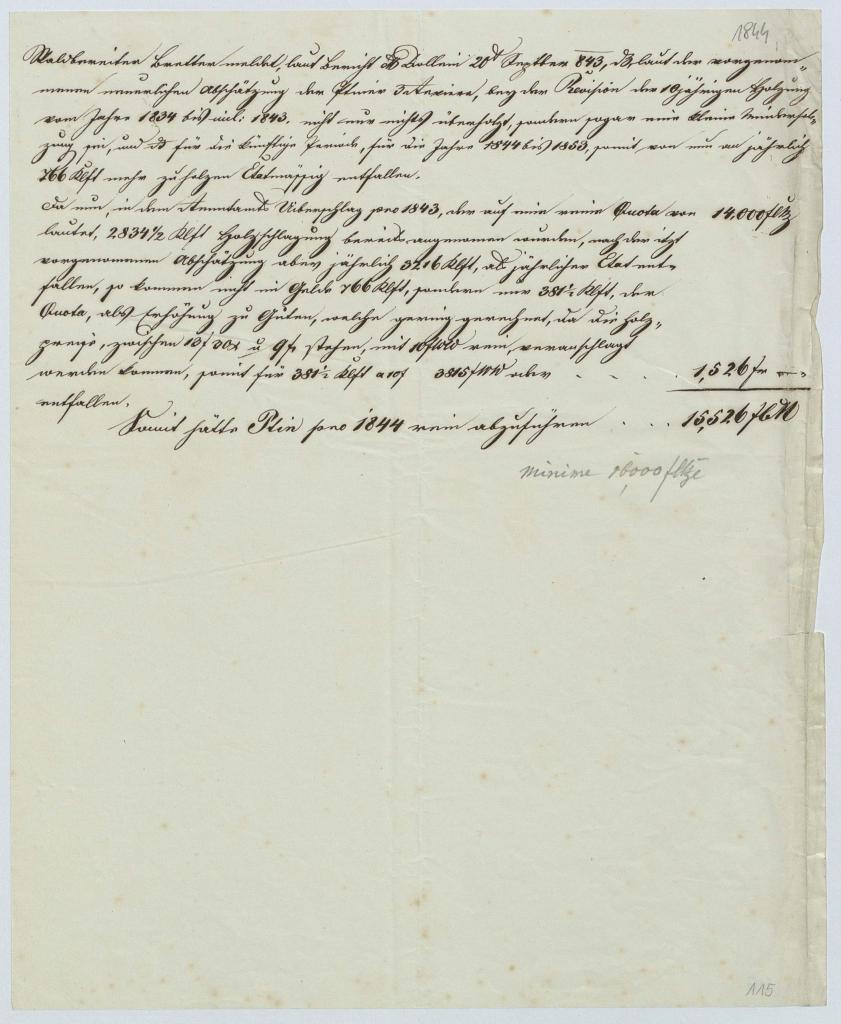 1844
Waldbereiter Bretter meldet, laut Bericht dto Dollein 20t Septber 843, daß laut der vorgenom-
menen neuerlichen Abschätzung der Plner Reviere, bey der Revision der 10jährigen Holzung
vom Jahre 1834 bis incl: 1843. nicht nur nichts überholzt, sondern sogar eine kleine Minderhol-
zung sei, und daß für die künftige Periode, für die Jahre 1844 bis 1853, somit von nun an jährlich
766 Klft mehr zu holzen Etatmässig entfallen.
Da nun, in dem Rentamts Ueberschlag pro 1843, der auf eine reine Quota von 14,000 f
lautet, 2834 1/2 Klft Holzschlagung bereits angenommen wurden, nach der itzt
vorgenommenen Abschätzung aber jährlich 3216 Klft, als jährlicher Etat ent-
fallen, so kommen nicht im Gelde 766 Klft, sondern nur 381 1/2 Klft, der
Quota, als Erhöhung zu Guten, welche gering gerechnet, da die Holz-
preise, zwischen 13f 30x u 9f stehen, mit 10f WW rein, veranschlagt
werden können, somit für 381 1/2 Klft a 10f 3815f WW oder . . . . 1,526 f
entfallen.
Somit hätte Plin pro 1844 rein abzuführen . . . 15,526 f
minime 16,000 f
115